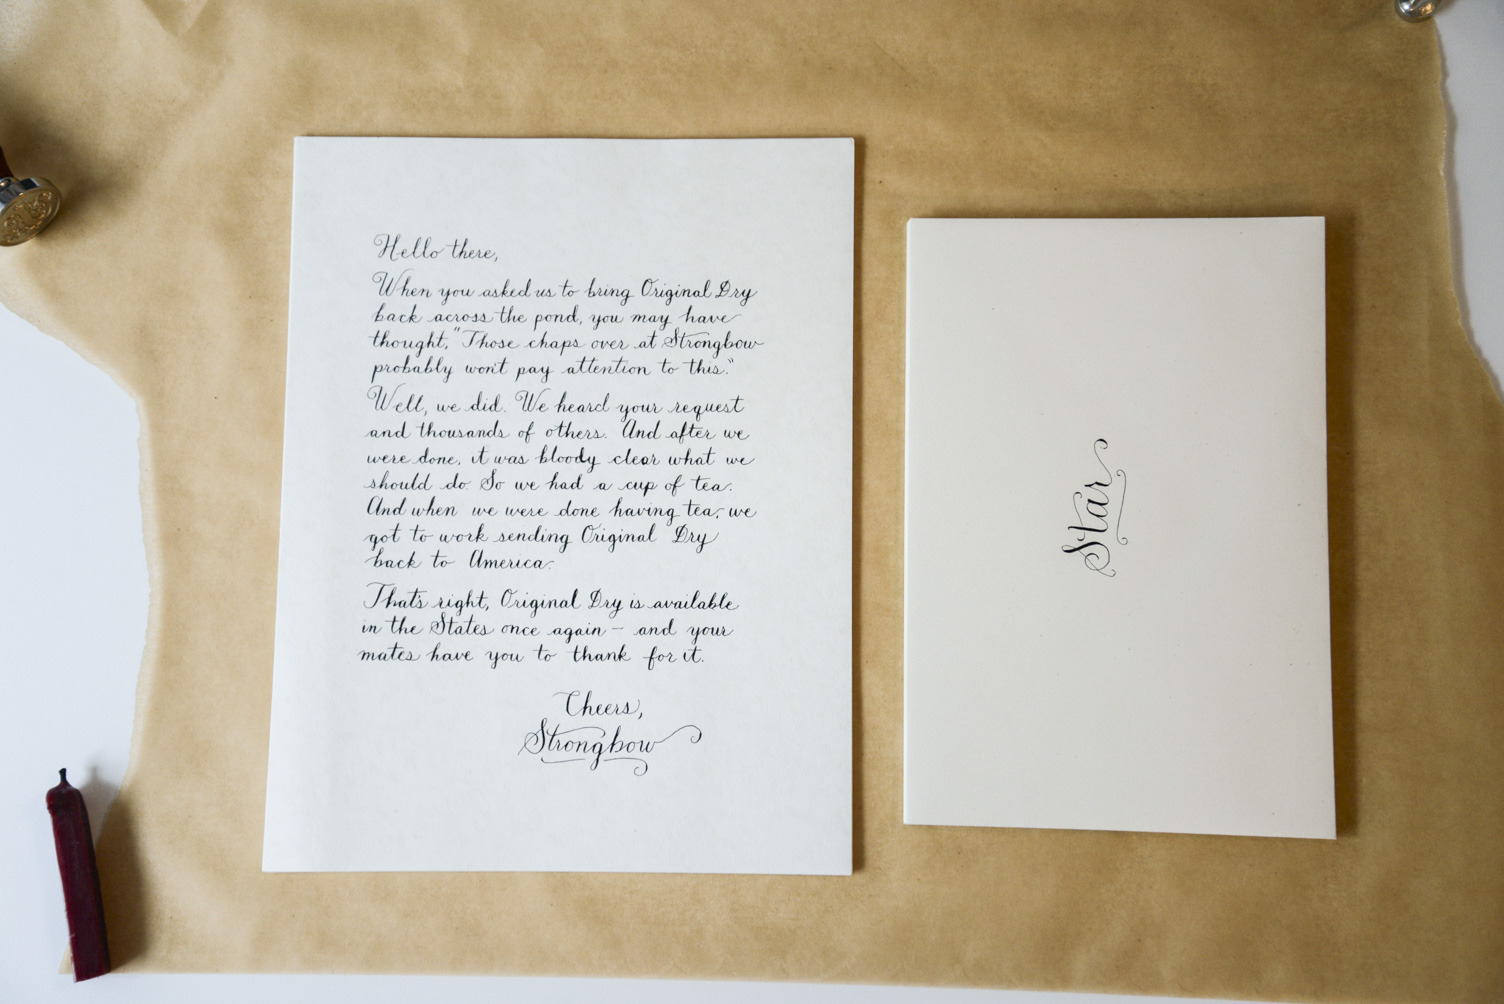 Hello there,
When you asked us to bring Original Dry
back across the pond, you may have
thought, "Those chaps over at Strongbow
probably won't pay attention to this."
Well, we did. We heard your request
and thousands of others. And after we
were done, it was bloody clear what we
should do. So we had a cup of tea.
And when we were done having tea, we
got to work sending Original Dry
back to America.
That's right, Original Dry is available
in the States once again – and your
mates have you to thank for it.
Cheers,
Strongbow
Star